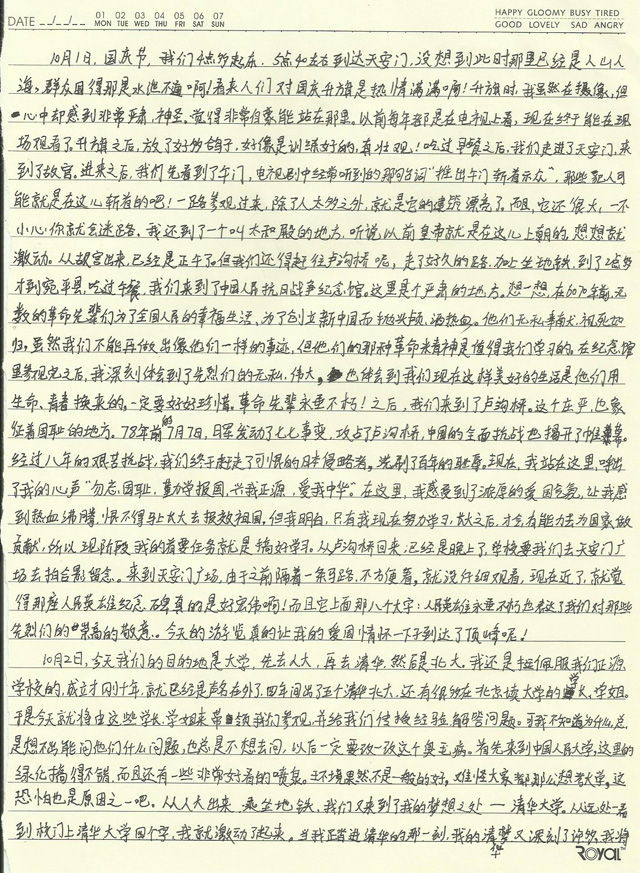 DATE __/__/__ 01 MON 02 TUE 03 WED 04 THU 05 FRI 06 SAT 07 SUN HAPPY GLOOMY BUSY TIRED
GOOD LOVELY SAD ANGRY
10月1日,国庆节,我们很早起床,5点40左右到达天安门,没想到此时那里已经是人山人
海,群众围得那是水泄不通啊!看来人们对国庆升旗是热情满满啊!升旗时,我虽然在摄像,但
心中却感到非常严肃,神圣。觉得非常自豪能站在那里。以前每年都是在电视上看,现在终于能在现
场观看了。升旗之后,放了好多鸽子,好像是训练好的,真壮观!吃过早餐之后,我们走进了天安门,来
到了故宫。进来之后,我们先看到了午门,电视剧中经常听到的那句台词“推出午门斩首示众”,那些犯人可
能就是在这儿斩首的吧!一路参观过来,除了人太多之外,就是它的建筑漂亮了。而且,它还很大,一不
小心你就会迷路。我还到了一个叫太和殿的地方,听说以前皇帝就是在这儿上朝的,想想就
激动。从故宫出来,已经是正午了。但我们还得赶往卢沟桥呢,走了好久的路,加上坐地铁,到了2点多
才到宛平县,吃过午餐,我们来到了中国人民抗日战争纪念馆。这里是个严肃的地方。想一想,在60几年前,无
数的革命先辈们为了全国人民的幸福生活,为了创立新中国而抛头颅,洒热血。他们无私奉献,视死如
归,虽然我们不能再做出像他们一样的事迹,但他们的那种革命精神是值得我们学习的。在纪念馆
里参观完之后,我深刻体会到了先烈们的无私,伟大,也体会到我们现在这样美好的生活是他们用
生命、青春换来的,一定要好好珍惜。革命先辈永垂不朽!之后,我们来到了卢沟桥。这个庄严,也象
征着国耻的地方。78年前的7月7日,日军发动了七七事变,攻占了卢沟桥,中国的全面抗战也揭开了帷幕。
经过八年的艰苦抗战,我们终于赶走了可恨的日本侵略者,洗刷了百年的耻辱。现在,我站在这里,喊出
了我的心声“勿忘国耻,勤学报国,兴我正源,爱我中华”。在这里,我感受到了浓厚的爱国气氛,让我感
到热血沸腾,恨不得马上长大去报效祖国。但我明白,只有我现在努力学习,长大之后,才会有能力去为国家做
贡献,所以现阶段我的首要任务就是搞好学习。从卢沟桥回来,已经是晚上了,学校要我们去天安门广
场去拍合影留念。来到天安门广场,由于之前隔着一条马路,不方便看,就没仔细观看,现在近了,就觉
得那座人民英雄纪念碑真的是好宏伟啊!而且它上面那八个大字:人民英雄永垂不朽也表达了我们对那些
先烈们的崇高的敬意。今天的游览真的让我的爱国情怀一下子到达了顶峰呢!
10月2日,今天我们的目的地是大学,先去人大,再去清华,然后是北大。我还是挺佩服我们正源
学校的,成立才刚十年,就已经是声名在外了,四年间出了五个清华北大,还有很多在北京读大学的学长,学姐。
于是今天就将由这些学长,学姐来带领我们参观,并给我们传授经验,解答问题。可我不知道为什么,总
是想不出能问他们什么问题,也总是不想去问,以后一定要改一改这个臭毛病。首先来到中国人民大学,这里的
绿化搞得不错,而且还有一些非常好看的喷泉。环境果然不是一般的好,难怪大家都那么想考大学,这
恐怕也是原因之一吧。从人大出来,乘坐地铁,我们又来到了我的梦想之处——清华大学。从远处一看
到校门上清华大学四个字,我就激动了起来。当我正踏进清华的那一刻,我的清华梦又深刻了许多,我将
ROYAL